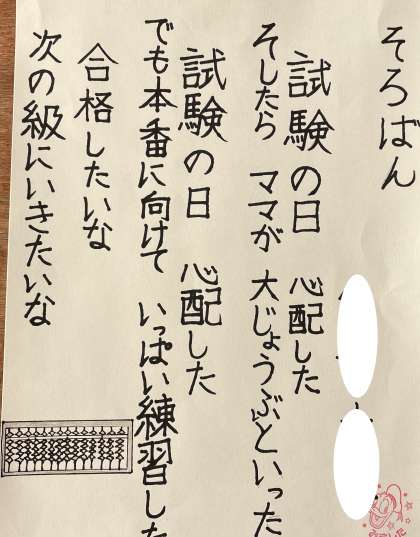 そろばん
試験の日 心配した
そしたら ママが 大じょうぶといった
試験の日 心配した
でも本番に向けて いっぱい練習した
合格したいな
次の級にいきたいな